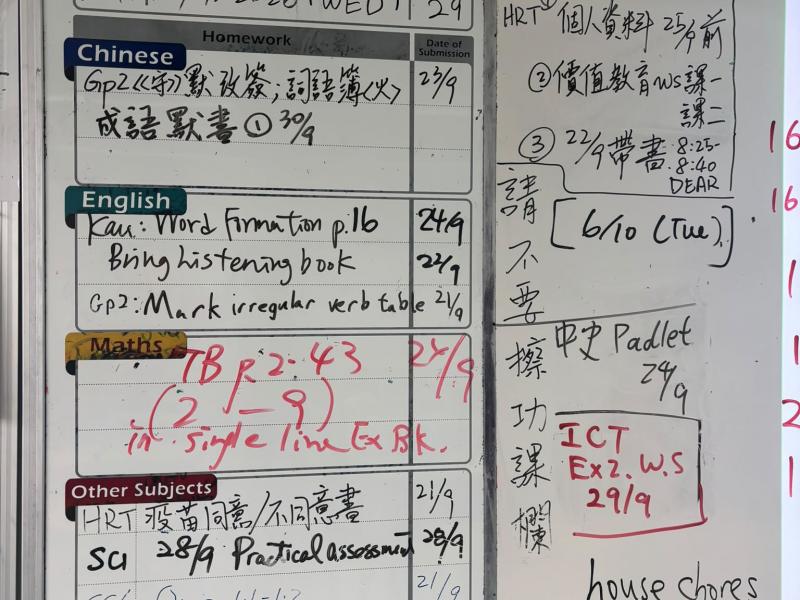 29
Homework
Date of Submission
Chinese
Gp2《守》默改簽；詞語簿<火> 23/9
成語默書① 30/9
English
Kau: Word Formation p.16 24/9
Bring Listening book 22/9
Gp2: Mark irregular verb table 21/9
Maths
TB p2-43 24/9
(2 — 9)
in single line Ex Bk.
Other Subjects
HRT 疫苗同意/不同意書 21/9
Sci 28/9 Practical assessment 28/9
21/9
HRT ① 個人資料 25/9前
② 價值教育ws課一
課二
③ 22/9帶書 8:25-
8:40
DEAR
[6/10 (Tue)]
請不要擦功課欄
中史 Padlet
24/9
ICT
Ex2. W.S
29/9
house chores
16
16
1
1
2
1